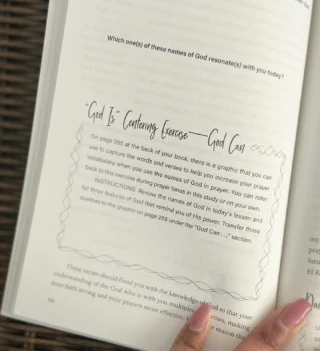 Which one(s) of these names of God resonate(s) with you today?
"God Is" Centering Exercise—God Can
On page 255 at the back of your book, there is a graphic that you can
use to capture the words and verses to help you increase your prayer
vocabulary when you use the names of God in prayer. You can refer
back to this exercise during prayer times in this study or on your own.
INSTRUCTIONS: Review the names of God in today's lesson and
for three features of God that remind you of His power. Transfer those
qualities to the graphic on page 255 under the "God Can . . ." section.
These verses should flood you with the knowledge of God so that your
understanding of the God who is with you multiplies, grows, making
your faith strong and your prayers more effective.
reason that
my